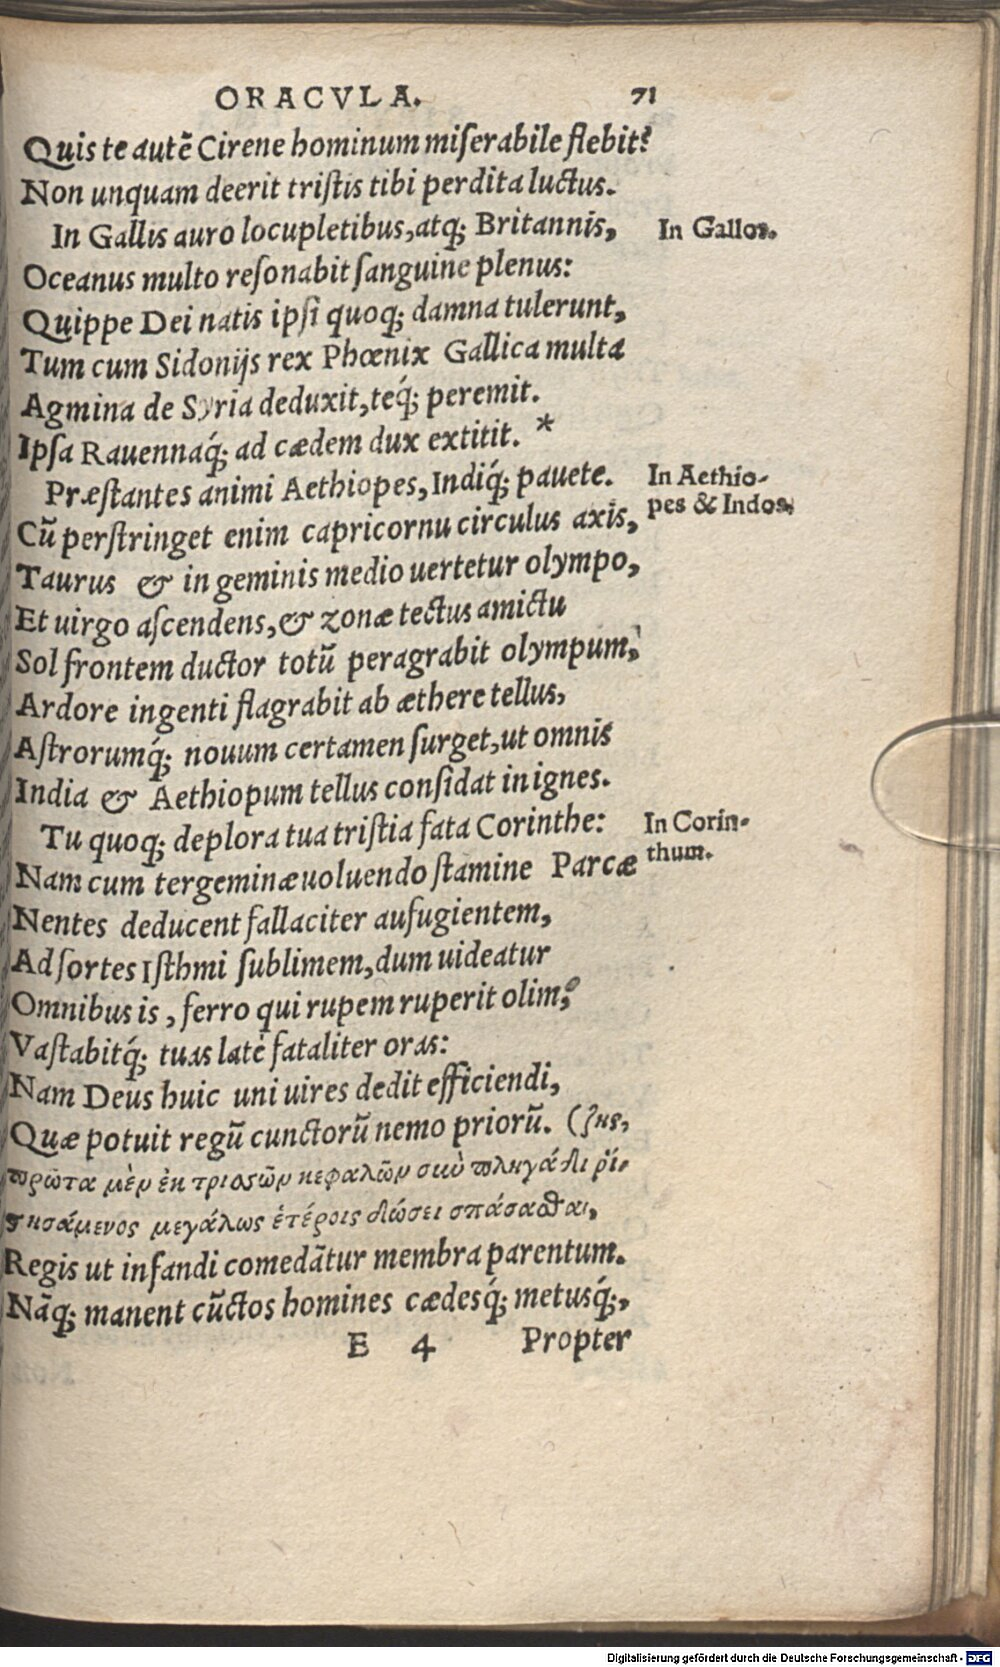 ORACVLA. 71
Quis te autē Cirene hominum miſerabile flebit?
Non unquam deerit triſtis tibi perdita luctus.
In Gallis auro locupletibus, atq; Britannis, In Gallos.
Oceanus multo reſonabit ſanguine plenus:
Quippe Dei natis ipſi quoq; damna tulerunt,
Tum cum Sidonijs rex Phœnix Gallica multa
Agmina de Syria deduxit, teq́; peremit.
Ipſa Rauennaq́; ad cædem dux extitit. *
Præſtantes animi Aethiopes, Indiq́; pauete. In Aethio-
Cū perſtringet enim capricornu circulus axis, pes & Indos.
Taurus & in geminis medio uertetur olympo,
Et uirgo aſcendens, & zonæ tectus amictu
Sol frontem ductor totū peragrabit olympum,
Ardore ingenti flagrabit ab æthere tellus,
Aſtrorumq́; nouum certamen ſurget, ut omnis
India & Aethiopum tellus conſidat in ignes.
Tu quoq; deplora tua triſtia fata Corinthe: In Corin-
Nam cum tergeminæ uoluendo ſtamine Parcæ thum.
Nentes deducent fallaciter aufugientem,
Ad ſortes Iſthmi ſublimem, dum uideatur
Omnibus is, ferro qui rupem ruperit olim,
Vaſtabitq́; tuas latè fataliter oras:
Nam Deus huic uni uires dedit efficiendi,
Quæ potuit regū cunctorū nemo priorū. (ζης,
πρῶτα μὲν ἐκ τριασῶν κεφαλῶν σὺν πληγάδι ῥί-
σησάμενος μεγάλως ἑτέροις δώσει σπάσασθαι,
Regis ut infandi comedātur membra parentum.
Nāq; manent cūctos homines cædesq́; metusq́;,
E 4 Propter
Digitalisierung gefördert durch die Deutsche Forschungsgemeinschaft - DFG